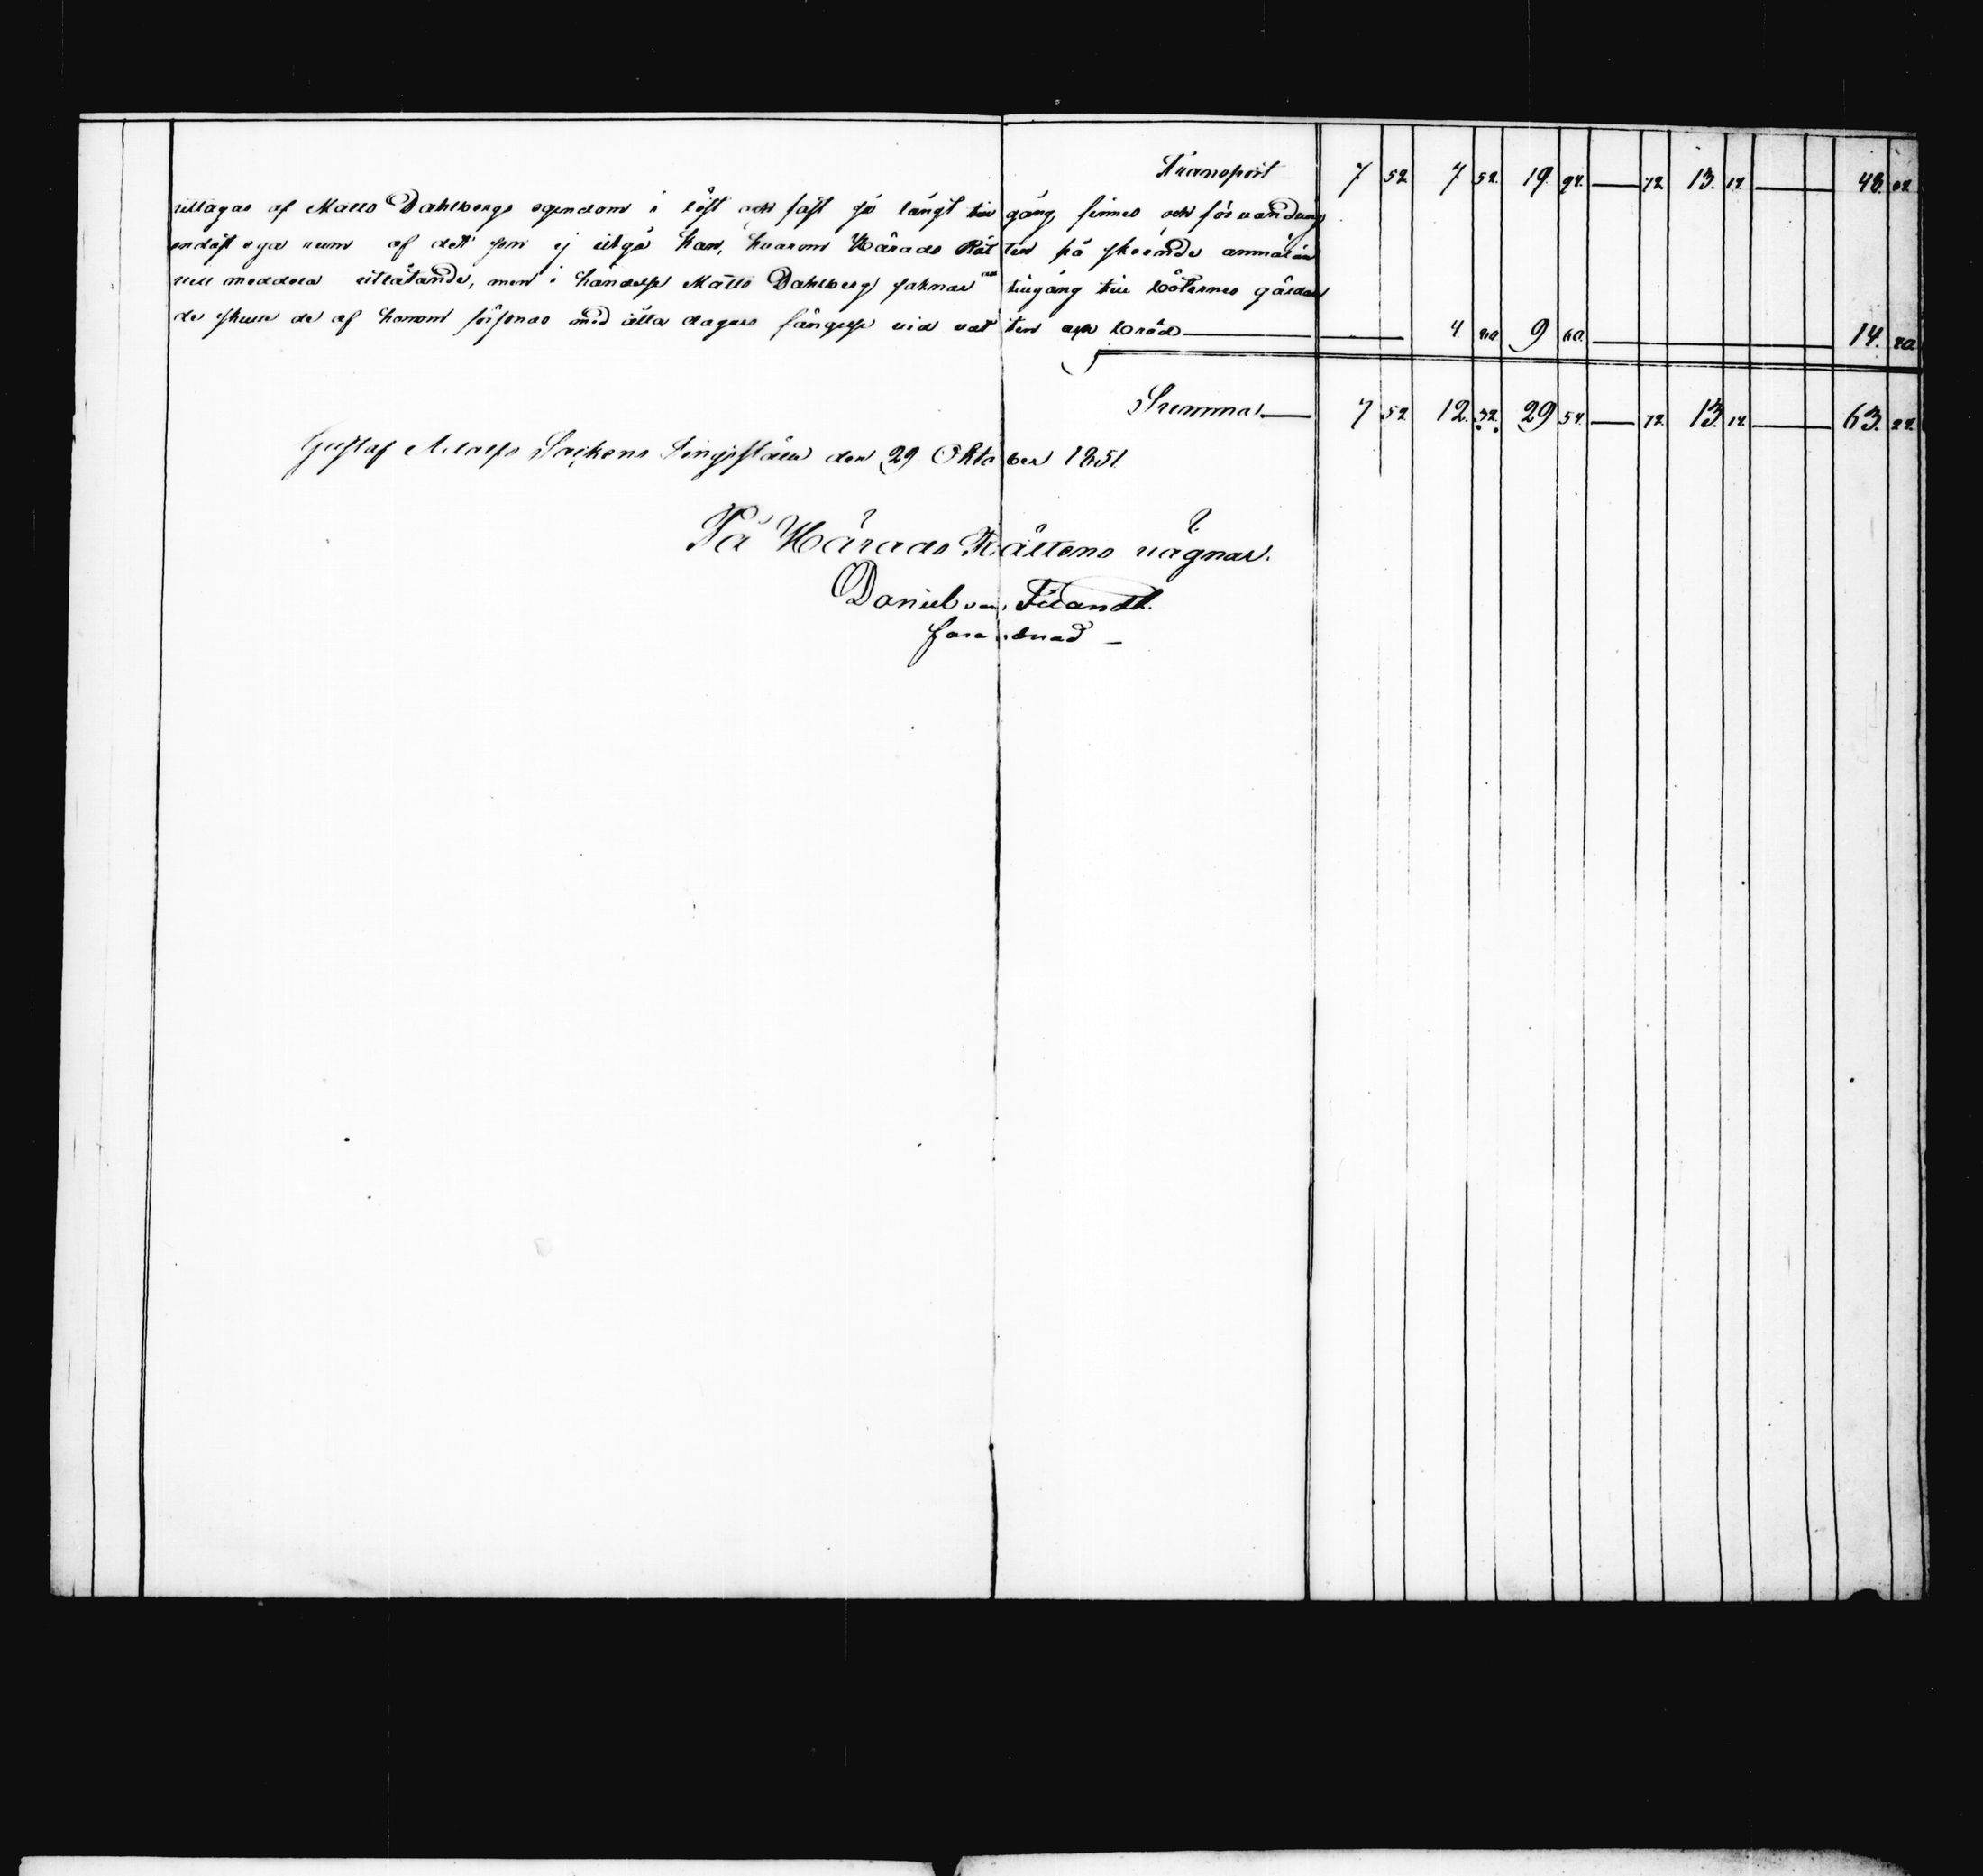 Transport 7 52 7 52. 19 94. — 72 13. 14 — 48. 62
uttagas af Matts Dahlbergs egendom i löst och fast så långt till gång finnes, och förvandling
endast ega rum af dett som ej utgå kan, hvarom Härads Rätten på skeende anmälan
vill meddela utlåtande, men i händelse Matts Dahlberg saknar all tillgång till böternes gäldan
de skulle de af honom försonas med åtta dagars fängelse vid vatten och bröd — 4 80 9 60. — 14. 40
Summa — 7 52 12. 32. 29 54. — 72. 13. 14. — 63. 22.
Gustaf Adolfs Sockens Tingsställe den 29 Oktober 1851
På Härads Rättens vägnar.
Daniel